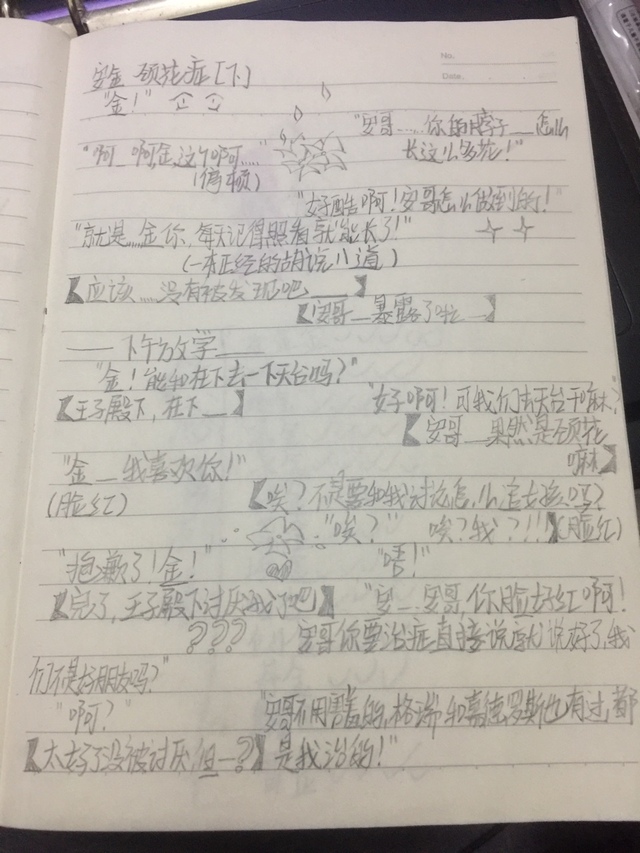 No.
Date.
安金 颈花症[下]
"金!"
"安哥……你的脖子__怎么
长这么多花!"
"啊_啊,金,这个啊……"
(停顿)
"好酷啊!安哥怎么做到的!"
"就是……金你,每天记得照看就能长了!"
(一本正经的胡说八道)
【应该……没有被发现吧__】
【安哥__暴露了啦__】
——下午放学——
"金!能和在下去一下天台吗?"
【王子殿下,在下__】
"好啊!可我们去天台干嘛?"
【安哥__果然是颈花
嘛】
"金__我喜欢你!"
(脸红)
【唉?不是要和我讨论怎么追女孩吗?
"唉?" 唉?我?!!】(脸红)
"抱歉了!金!"
"唔!"
【完了,王子殿下讨厌我了吧】
"安__安哥,你脸好红啊!
???
安哥你要治症直接说就好了,我
们不是好朋友吗?"
"啊?"
"安哥不用害羞的,格瑞和嘉德罗斯也有过,都
是我治的!"
【太好了没被讨厌,但__?】